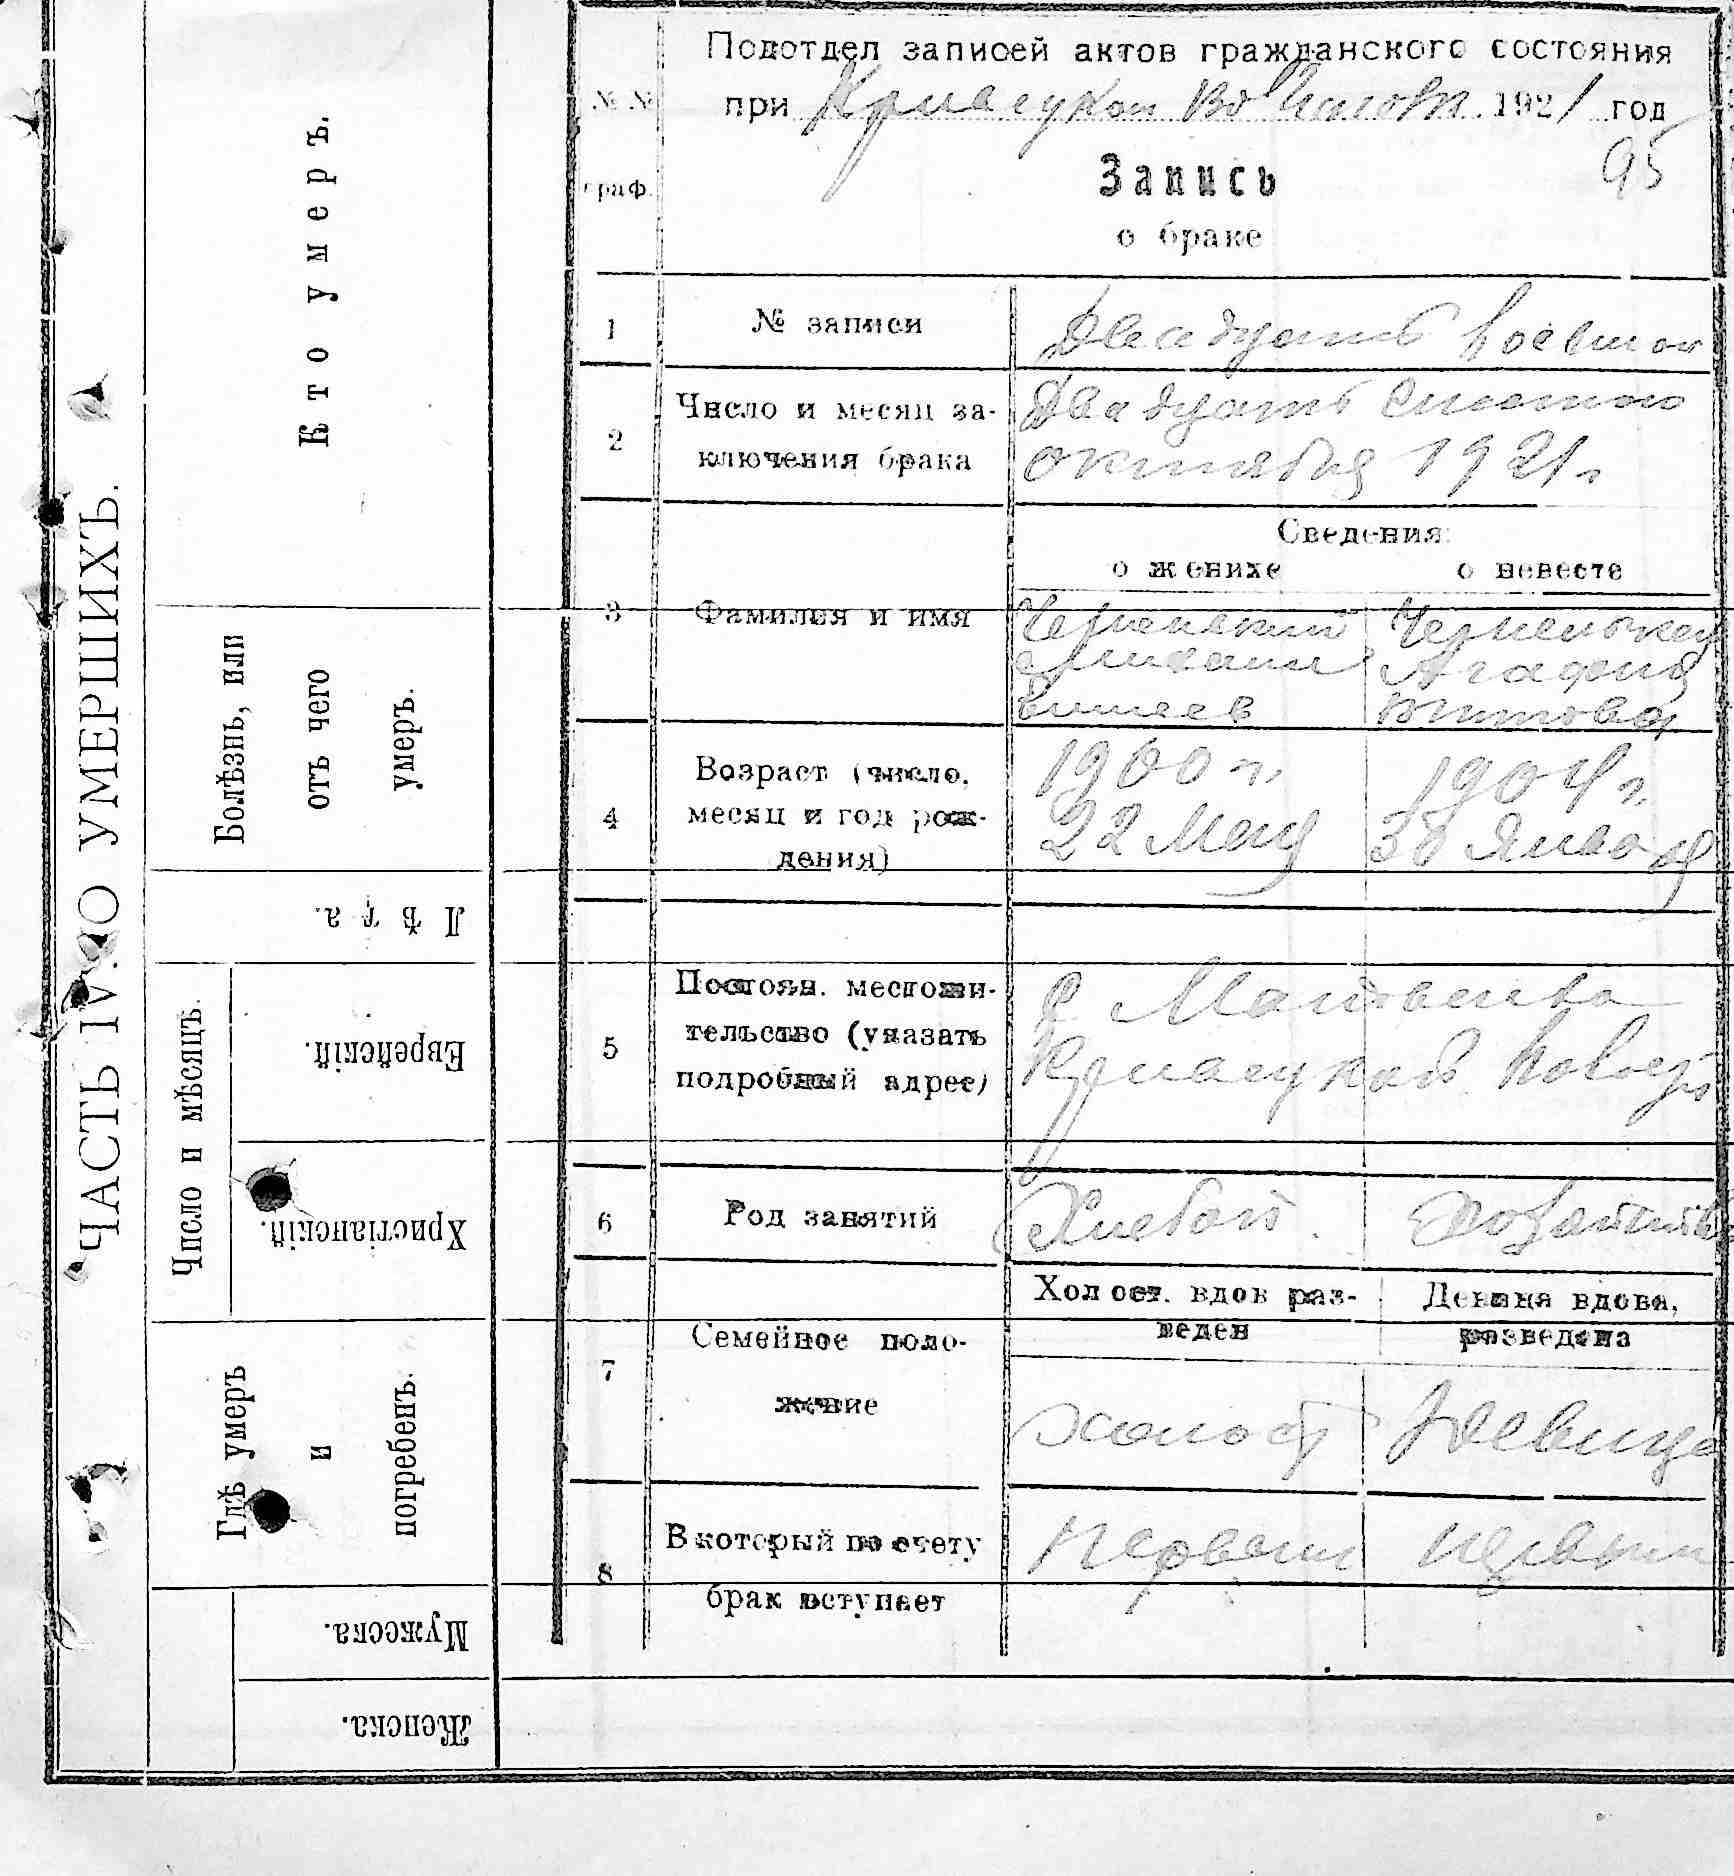 ЧАСТЬ IV. О УМЕРШИХЪ.
Кто умеръ.
Болѣзнь, или
отъ чего
умеръ.
Лѣта.
Число и мѣсяцъ.
Еврейскій.
Христіанскій.
Гдѣ умеръ
и
погребенъ.
Мужеска.
Женска.
Подотдел записей актов гражданского состояния
при 1921 год
95
№№
граф.
Запись
о браке
1 № записи Двадцать
2 Число и месяц за-
ключения брака
Двадцать
октября 1921 г
Сведения:
о женихе о невесте
3 Фамилия и имя
Михаил Агафия
Титова
4 Возраст (число,
месяц и год рож-
дения)
1900 г. 1904 г.
22 Мая 30 Января
5 Постоян. местожи-
тельство (указать
подробный адрес)
6 Род занятий Хлебоп.
7 Семейное поло-
жение
Холост. вдов раз-
веден
Девица вдова,
разведена
холост Девица
8 В который по счету
брак вступает
Первый первый